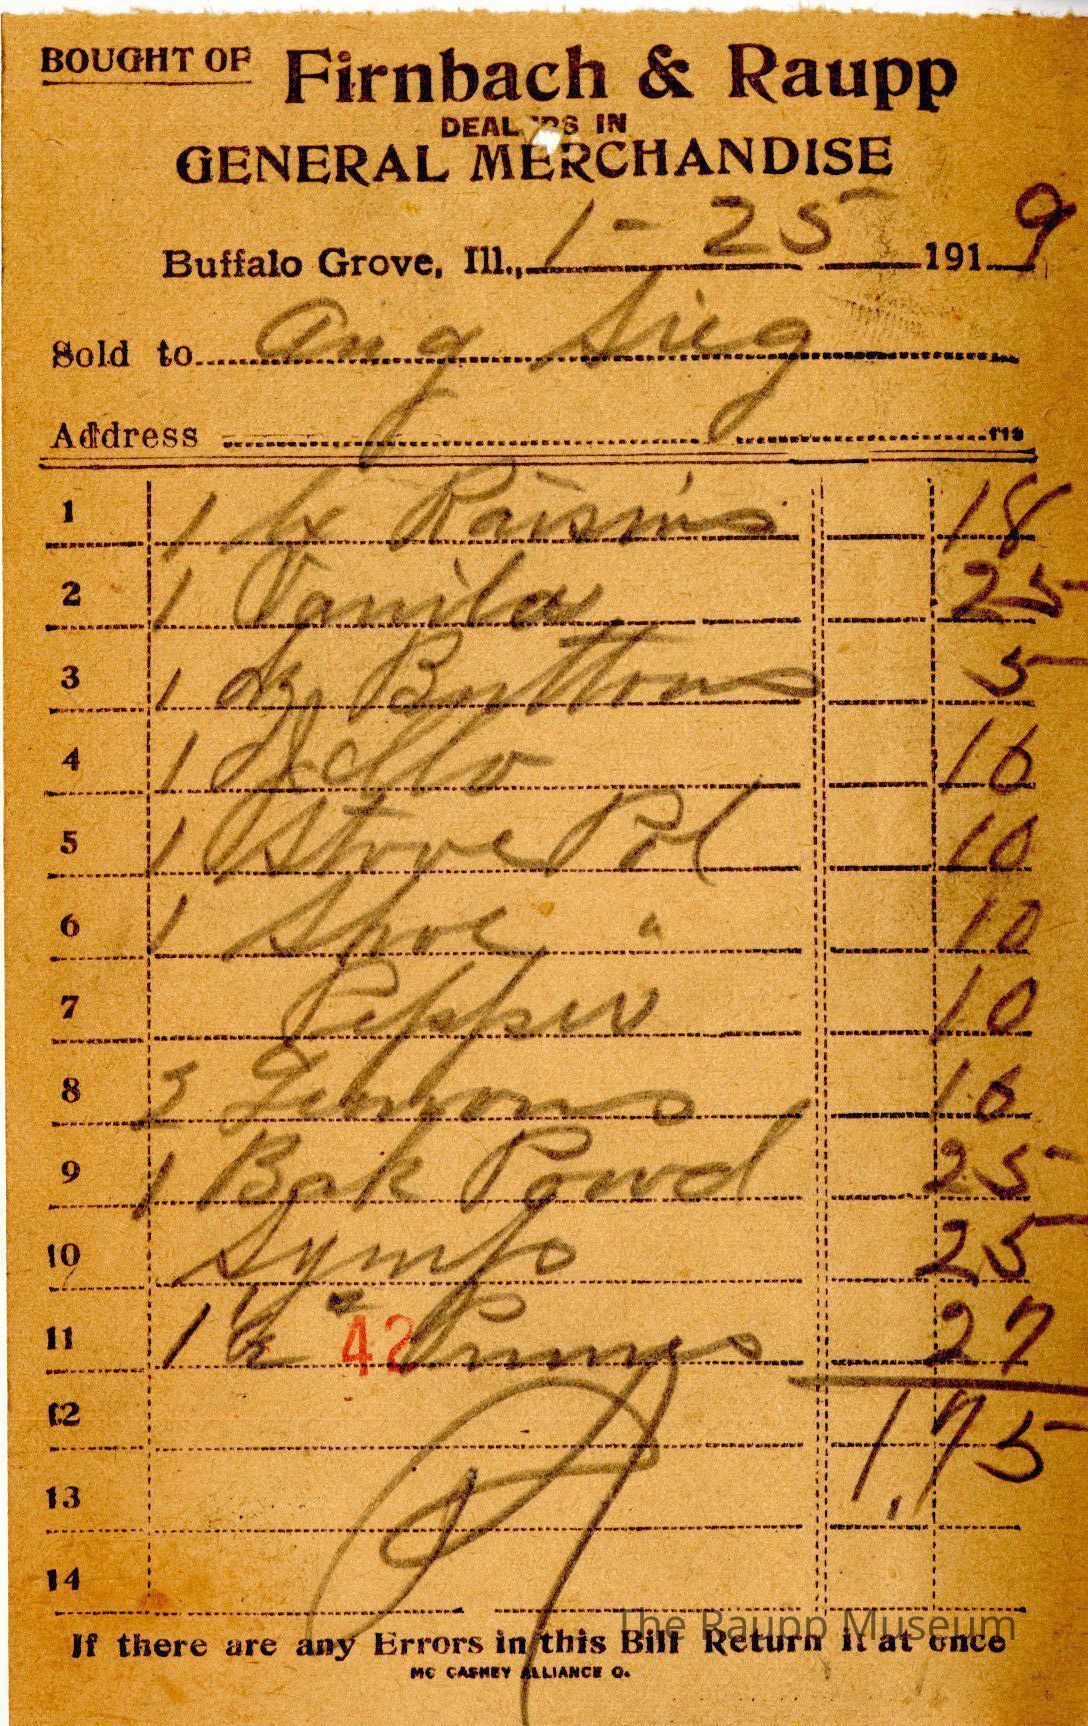 BOUGHT OF Firnbach & Raupp
DEALERS IN
GENERAL MERCHANDISE
Buffalo Grove, Ill., 1-25 1919
Sold to Aug Sieg
Address
1 1 bx Raisins 18
2 1 Vanila 25
3 1 dz Buttons 5
4 1 Jello
5 1 Stove Pol 10
6 1 Shoe " 10
7 Pepper 10
8 Lemons
9 1 Bak Powd 25
10 25
11 1 42 Prunes 27
12 1.75
13
14
The Raupp Museum
If there are any Errors in this Bill Return it at once
MC CASKEY ALLIANCE O.